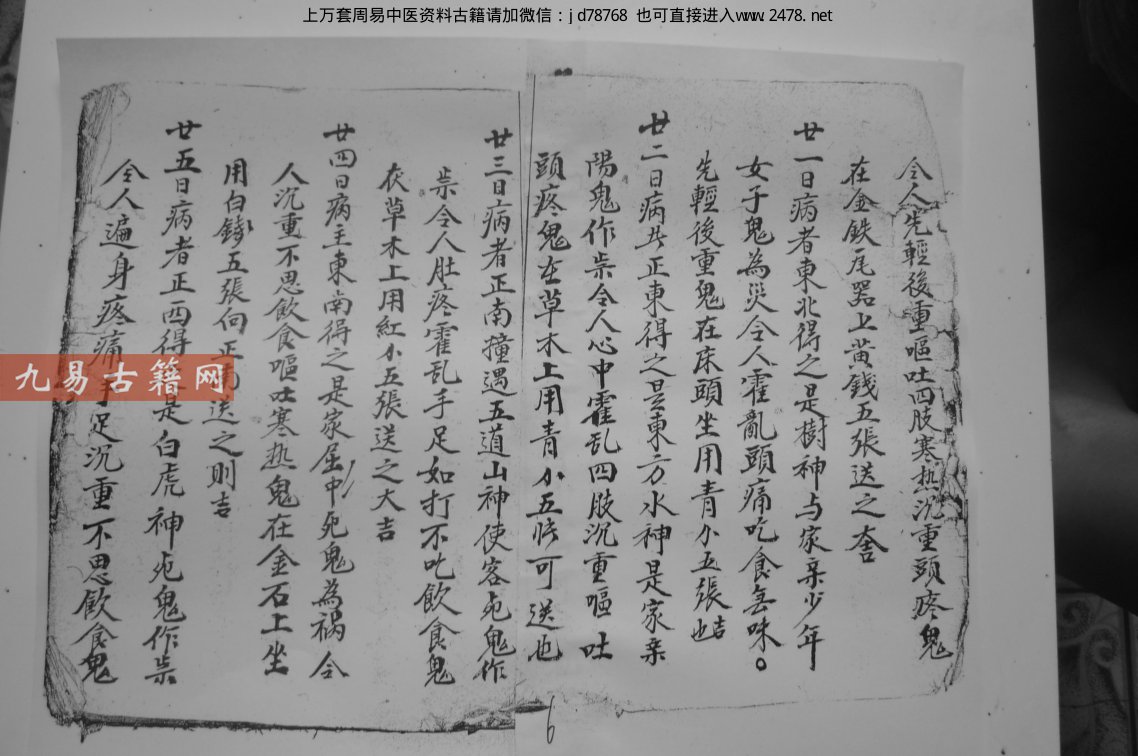 上万套周易中医资料古籍请加微信：jd78768 也可直接进入www.2478.net
令人先輕後重嘔吐四肢寒热沉重頭疼鬼
在金鉄瓦器上黄錢五張送之大吉
廿一日病者東北得之是樹神与家亲少年
女子鬼為災令人霍亂頭痛吃食無味。
先輕後重鬼在床頭坐用青小五張吉也
廿二日病者正東得之是東方水神是家亲
陽鬼作祟令人心中霍乱四肢沉重嘔吐
頭疼鬼在草木上用青小五张可送也
廿三日病者正南撞遇五道山神使客死鬼作
祟令人肚疼霍乱手足如打不吃飲食鬼
在草木上用紅小五張送之大吉
廿四日病主東南得之是家屈中死鬼為禍令
人沉重不思飲食嘔吐寒热鬼在金石上坐
用白錢五張向正南送之則吉
廿五日病者正西得是白虎神死鬼作祟
令人遍身疼痛手足沉重不思飲食鬼
九易古籍网
6